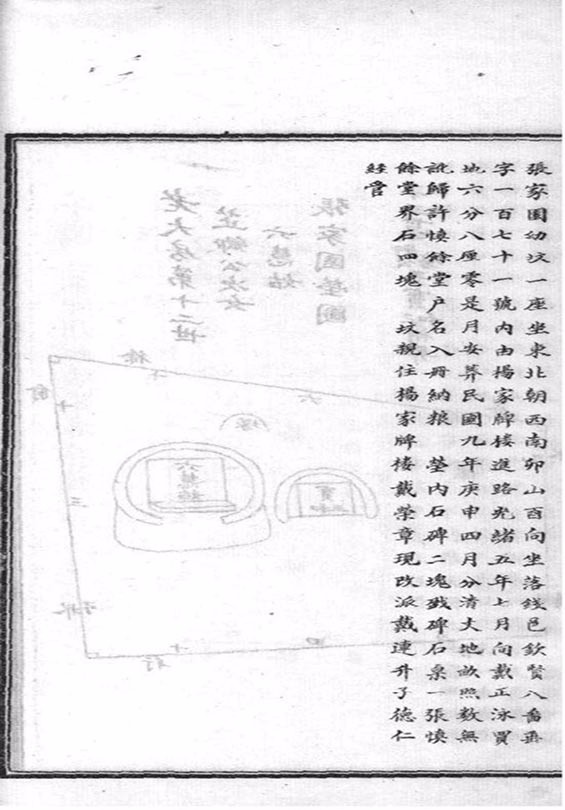 張家園幼坟一座坐東北朝西南卯山酉向坐落錢邑欽賢八啚垂
字一百七十一號內由楊家牌樓進路光緒五年七月向戴正泳買
地六分八厘零是月安葬民國九年庚申四月分清丈地畝照數無
訛歸許慎餘堂户名入册納粮 塋內石碑二塊碑石桌一張慎
餘堂界石四塊 坟親住楊家牌樓戴榮章現改派戴連升子德仁
經管
張家園塋圖
六慧姑
卿公次女
老大房第十二世